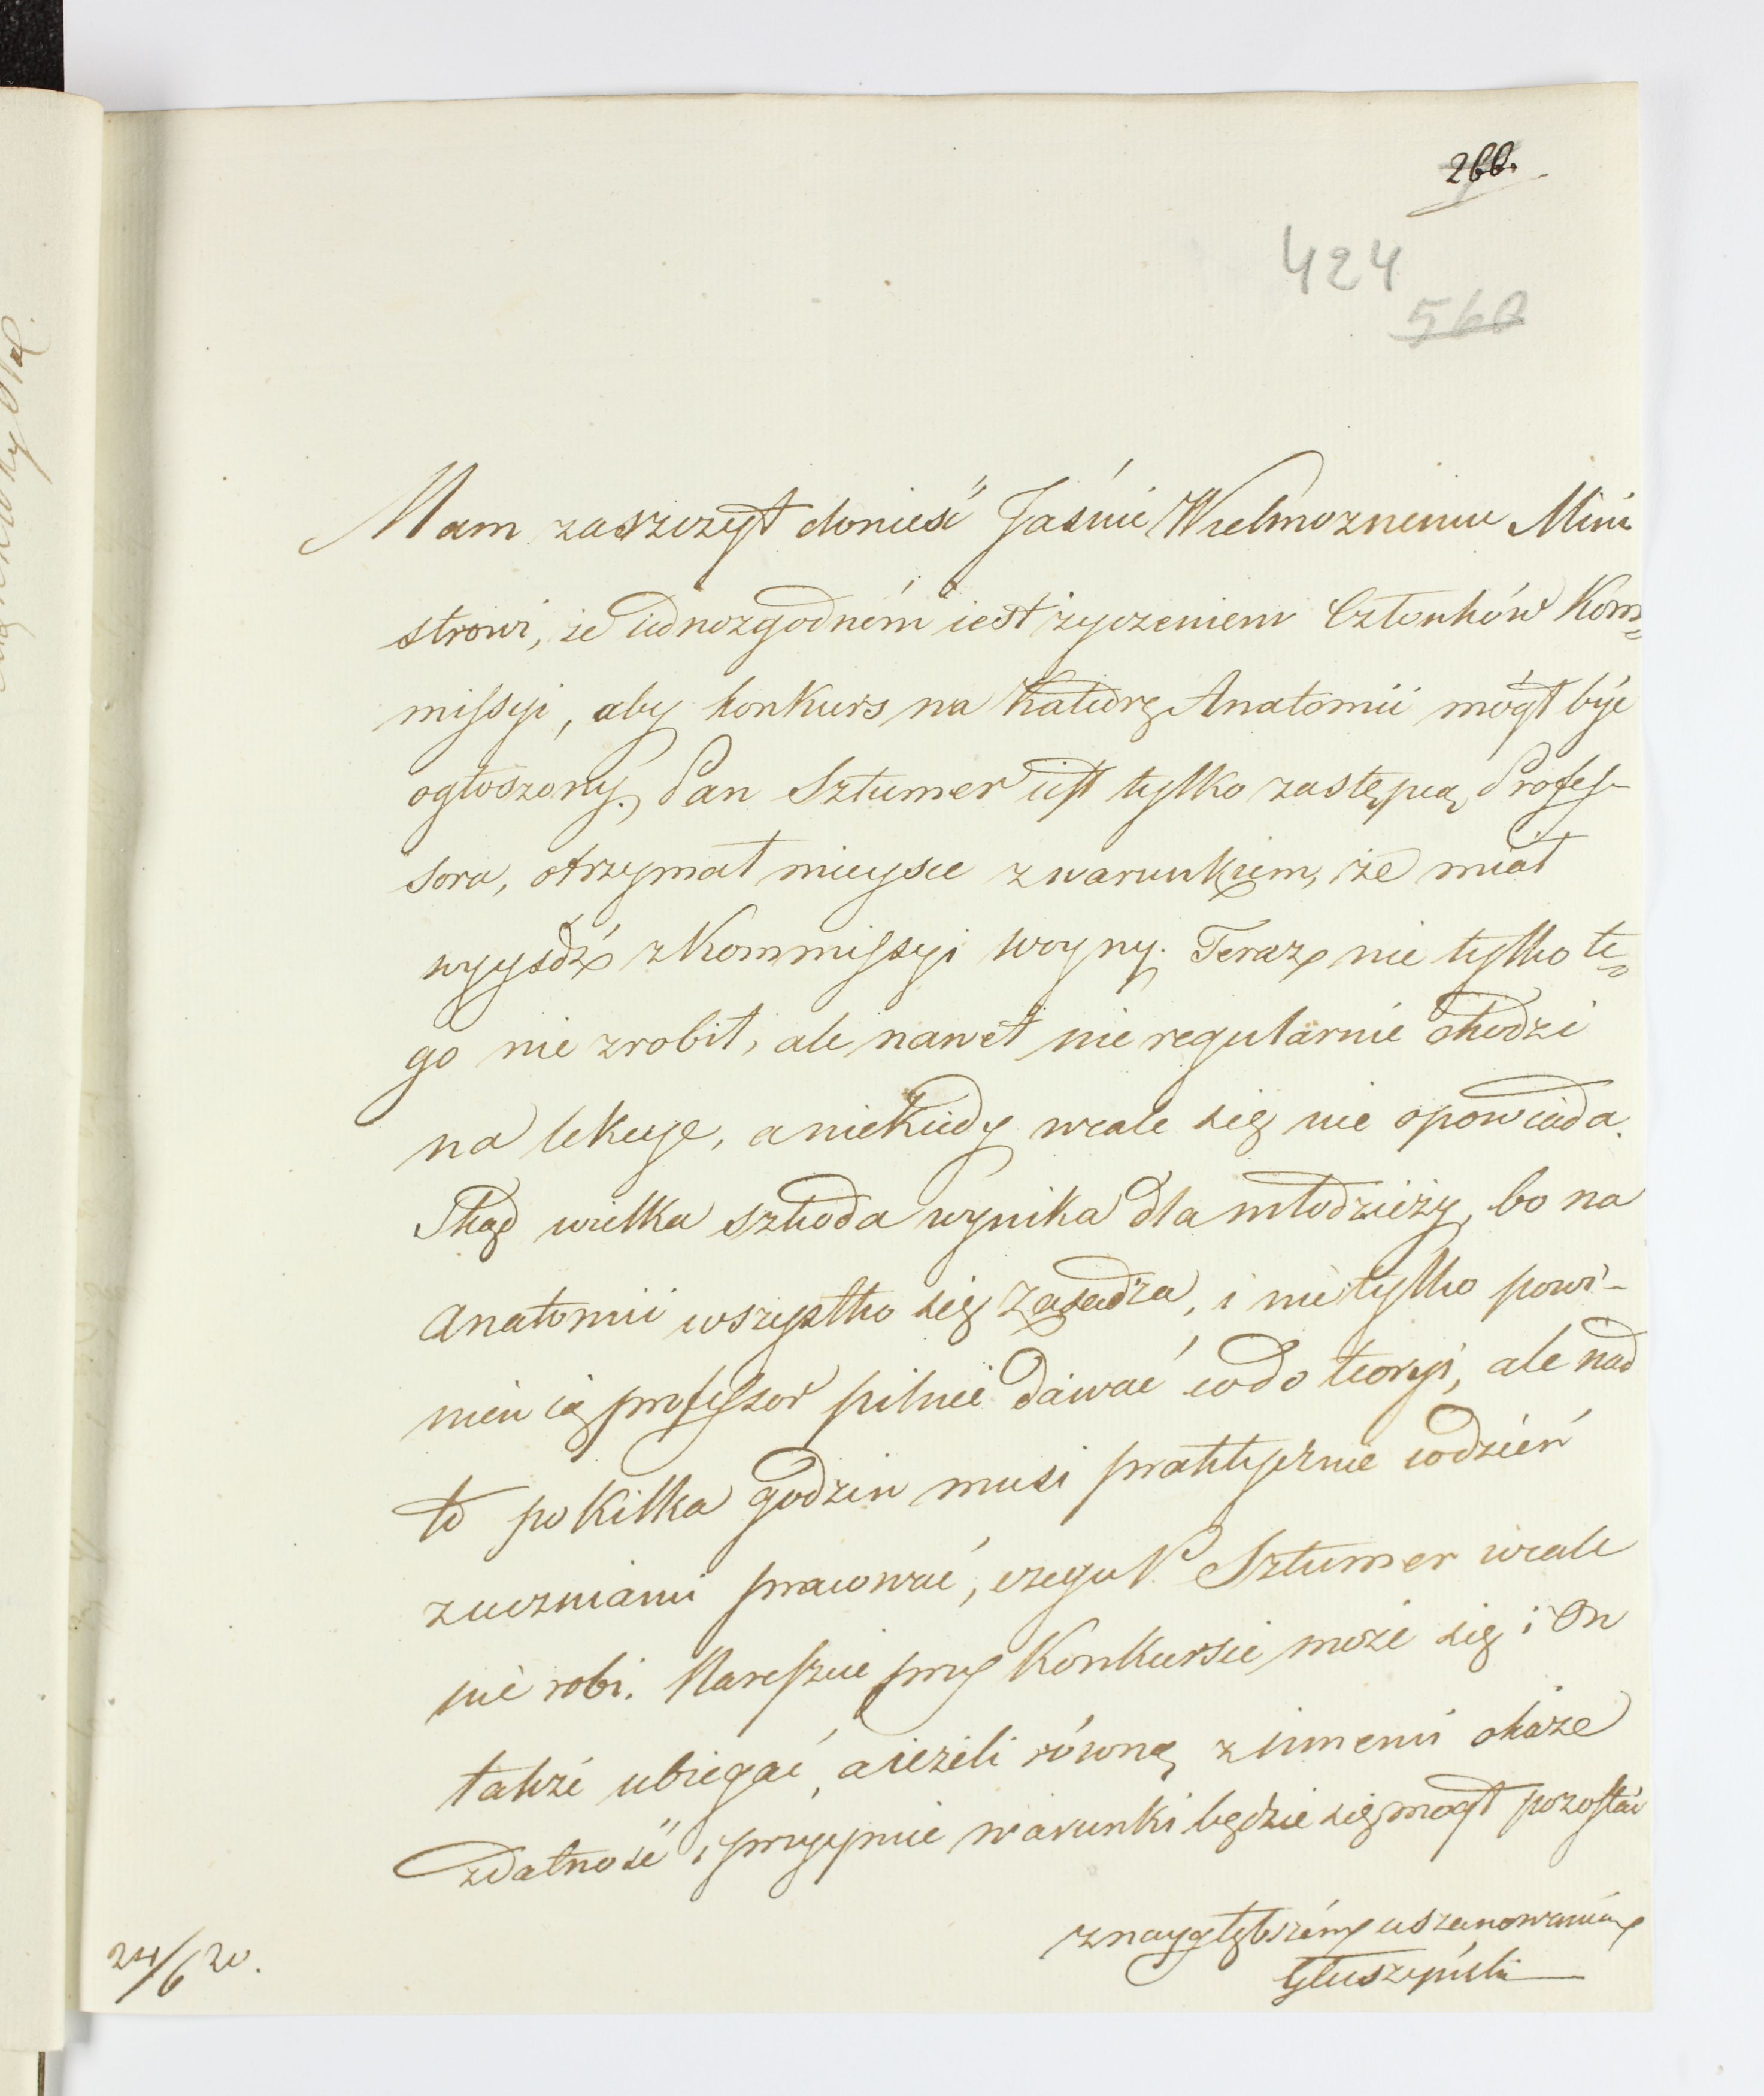 266.
424
560
Mam zaszczyt donieść Jaśnie Wielmoznemu Mini
strowi, że iednozgodném iest życzeniem Członków Kom=
missyi, aby konkurs na Katedrę Anatomii mógł być
ogłoszony. Pan Sztumer iest tylko zastępcą Profes-
sora, otrzymał mieysce z warunkiem, że miał
wyyśdź z Kommissyi woyny. Teraz nie tylko te=
go nie zrobił, ale nawet nie regularnie chodzi
na lekcye, a niekiedy wcale się nie opowiada.
Skąd wielka szkoda wynika dla młodzieży, bo na
Anatomii wszystko się zasadza, i nie tylko powi-
nien ią professor pilnie dawać codo teoryi, ale nad
to po kilka godzin musi praktycznie codzień
z uczniami pracować, czego P. Sztumer wcale
nie robi. Nareszcie przy Konkursie może się i On
także ubiegać, a ieżeli równą z innemi okaże
zdatność i przyymie warunki będzie się mógł pozostać
z naygłębszém uszanowaniem
Głuszyński
24/6 20.